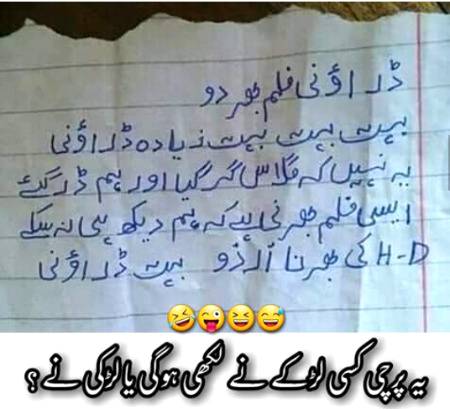 ڈراؤنی فلم بھر دو
بہت بہت بہت زیادہ ڈراؤنی
یہ نہیں کہ گلاس گر گیا اور ہم ڈر گئے
ایسی فلم بھرنی ہے کہ ہم دیکھ ہی نہ سکے
H-D کی بھرنا اُردُو بہت ڈراؤنی
🤣😜😆😅
یہ پرچی کسی لڑکے نے لکھی ہوگی یا لڑکی نے؟